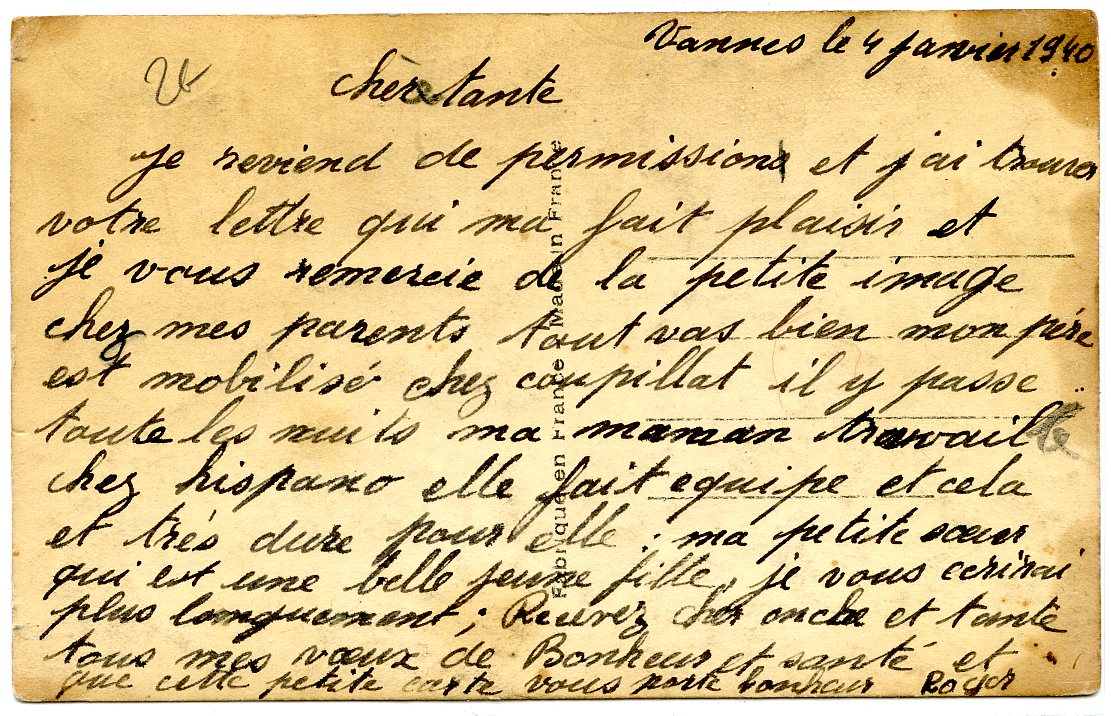 Vannes le 4 janvier 1940
2f
cher tante
Je reviend de permission et j'ai trouver
votre lettre qui ma fait plaisir et
je vous remercie de la petite image
chez mes parents tout vas bien mon père
est mobilisé chez coupillat il y passe
toute les nuits ma maman travaille
chez hispano elle fait equipe et cela
et très dure pour elle ; ma petite sœur
qui est une belle jeune fille, je vous ecrirai
plus longuement ; Recevez cher oncle et tante
tous mes vœux de Bonheur et santé et
que cette petite carte vous porte bonheur Roger
Fabriqué en France - Made in France